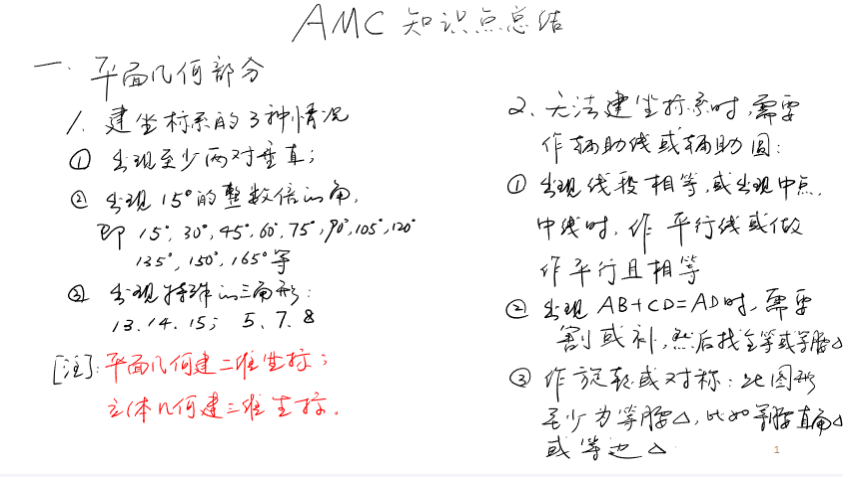 AMC 知识点总结
一. 平面几何部分
1. 建坐标系的3种情况
① 出现至少两对垂直;
② 出现15°的整数倍的角,
即 15°, 30°, 45°, 60°, 75°, 90°, 105°, 120°
135°, 150°, 165°等
③ 出现特殊的三角形:
13. 14. 15; 5、7、8
[注]: 平面几何建二维坐标;
立体几何建三维坐标.
2. 无法建坐标系时,需要
作辅助线或辅助圆:
① 出现线段相等,或出现中点.
中线时, 作 平行线或做
作平行且相等
② 出现 AB+CD=AD时,需要
割或补,然后找全等或等腰△
③ 作旋转或对称: 此图形
至少为等腰△, 比如等腰直角△
或等边△
1